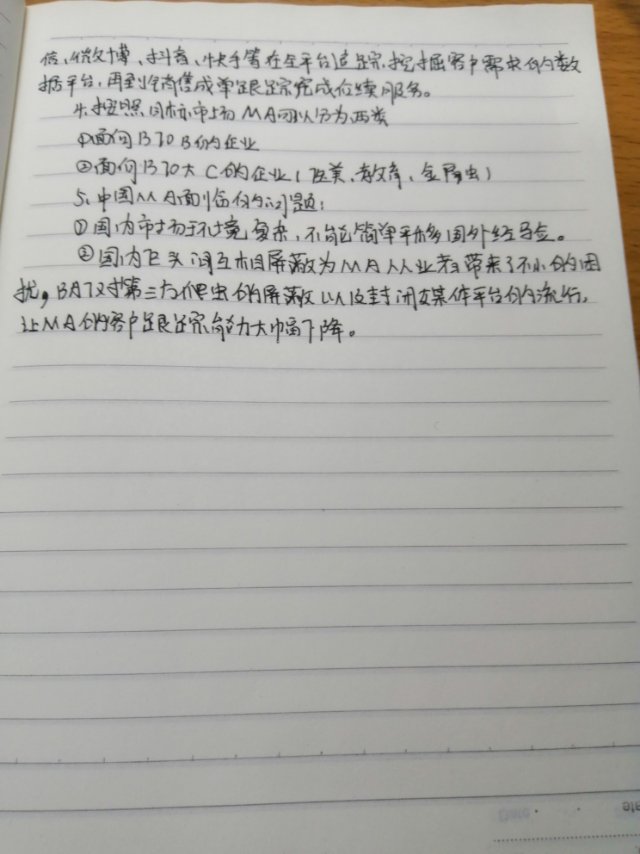 信、微博、抖音、快手等在全平台追踪、挖掘客户需求的数
据平台，再到销售成单跟踪完成后续服务。
4、按照目标市场MA可以分为两类
①面向B TO B的企业
②面向B TO 大C的企业（医美、教育、金融）
5、中国MA面临的问题：
①国内市场环境复杂，不能简单平移国外经验。
②国内巨头间互相屏蔽为MA从业者带来了不小的困
扰，BAT对第三方爬虫的屏蔽以及封闭媒体平台的流行，
让MA的客户跟踪能力大幅下降。
Date